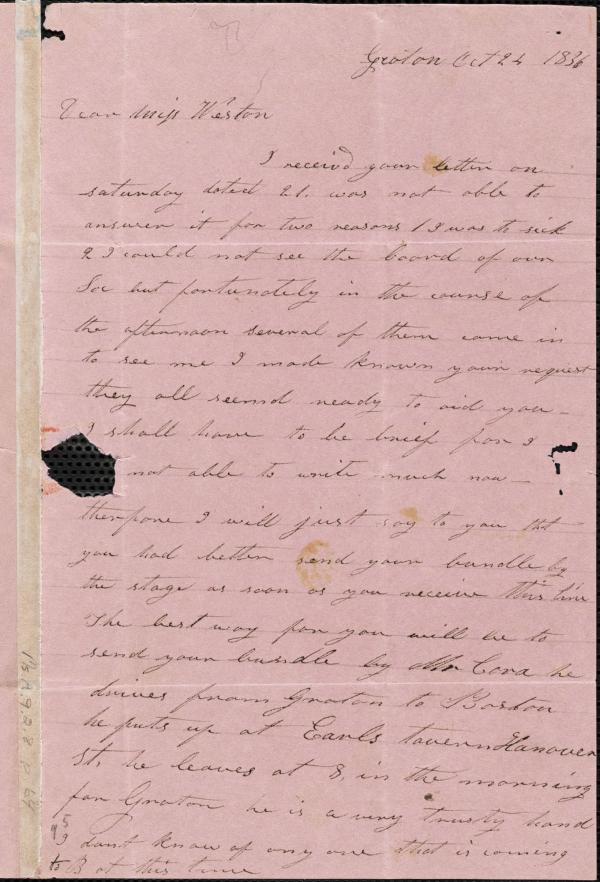 Groton Oct 24 1836
Dear Miss Weston
I receivd your letter on
saturday dated 21. was not able to
answer it for two reasons 1 I was to sick
2 I could not see the board of our
Soc but fortunately in the course of
the afternoon several of them came in
to see me I made known your request
they all seemd ready to aid you -
I shall have to be brief for I
not able to write much now -
therfore I will just say to you that
you had better send your bundle by
the stage as soon as you receive this line
The best way for you will be to
send your bundle by Mr Cora he
drives from Groton to Boston
he puts up at Earls tavern Hanover
St, he leaves at 8, in the morning
for Groton he is a very trusty hand
I dont know of any one that is coming
to B at this time
Ms A.9.2.8 p 64